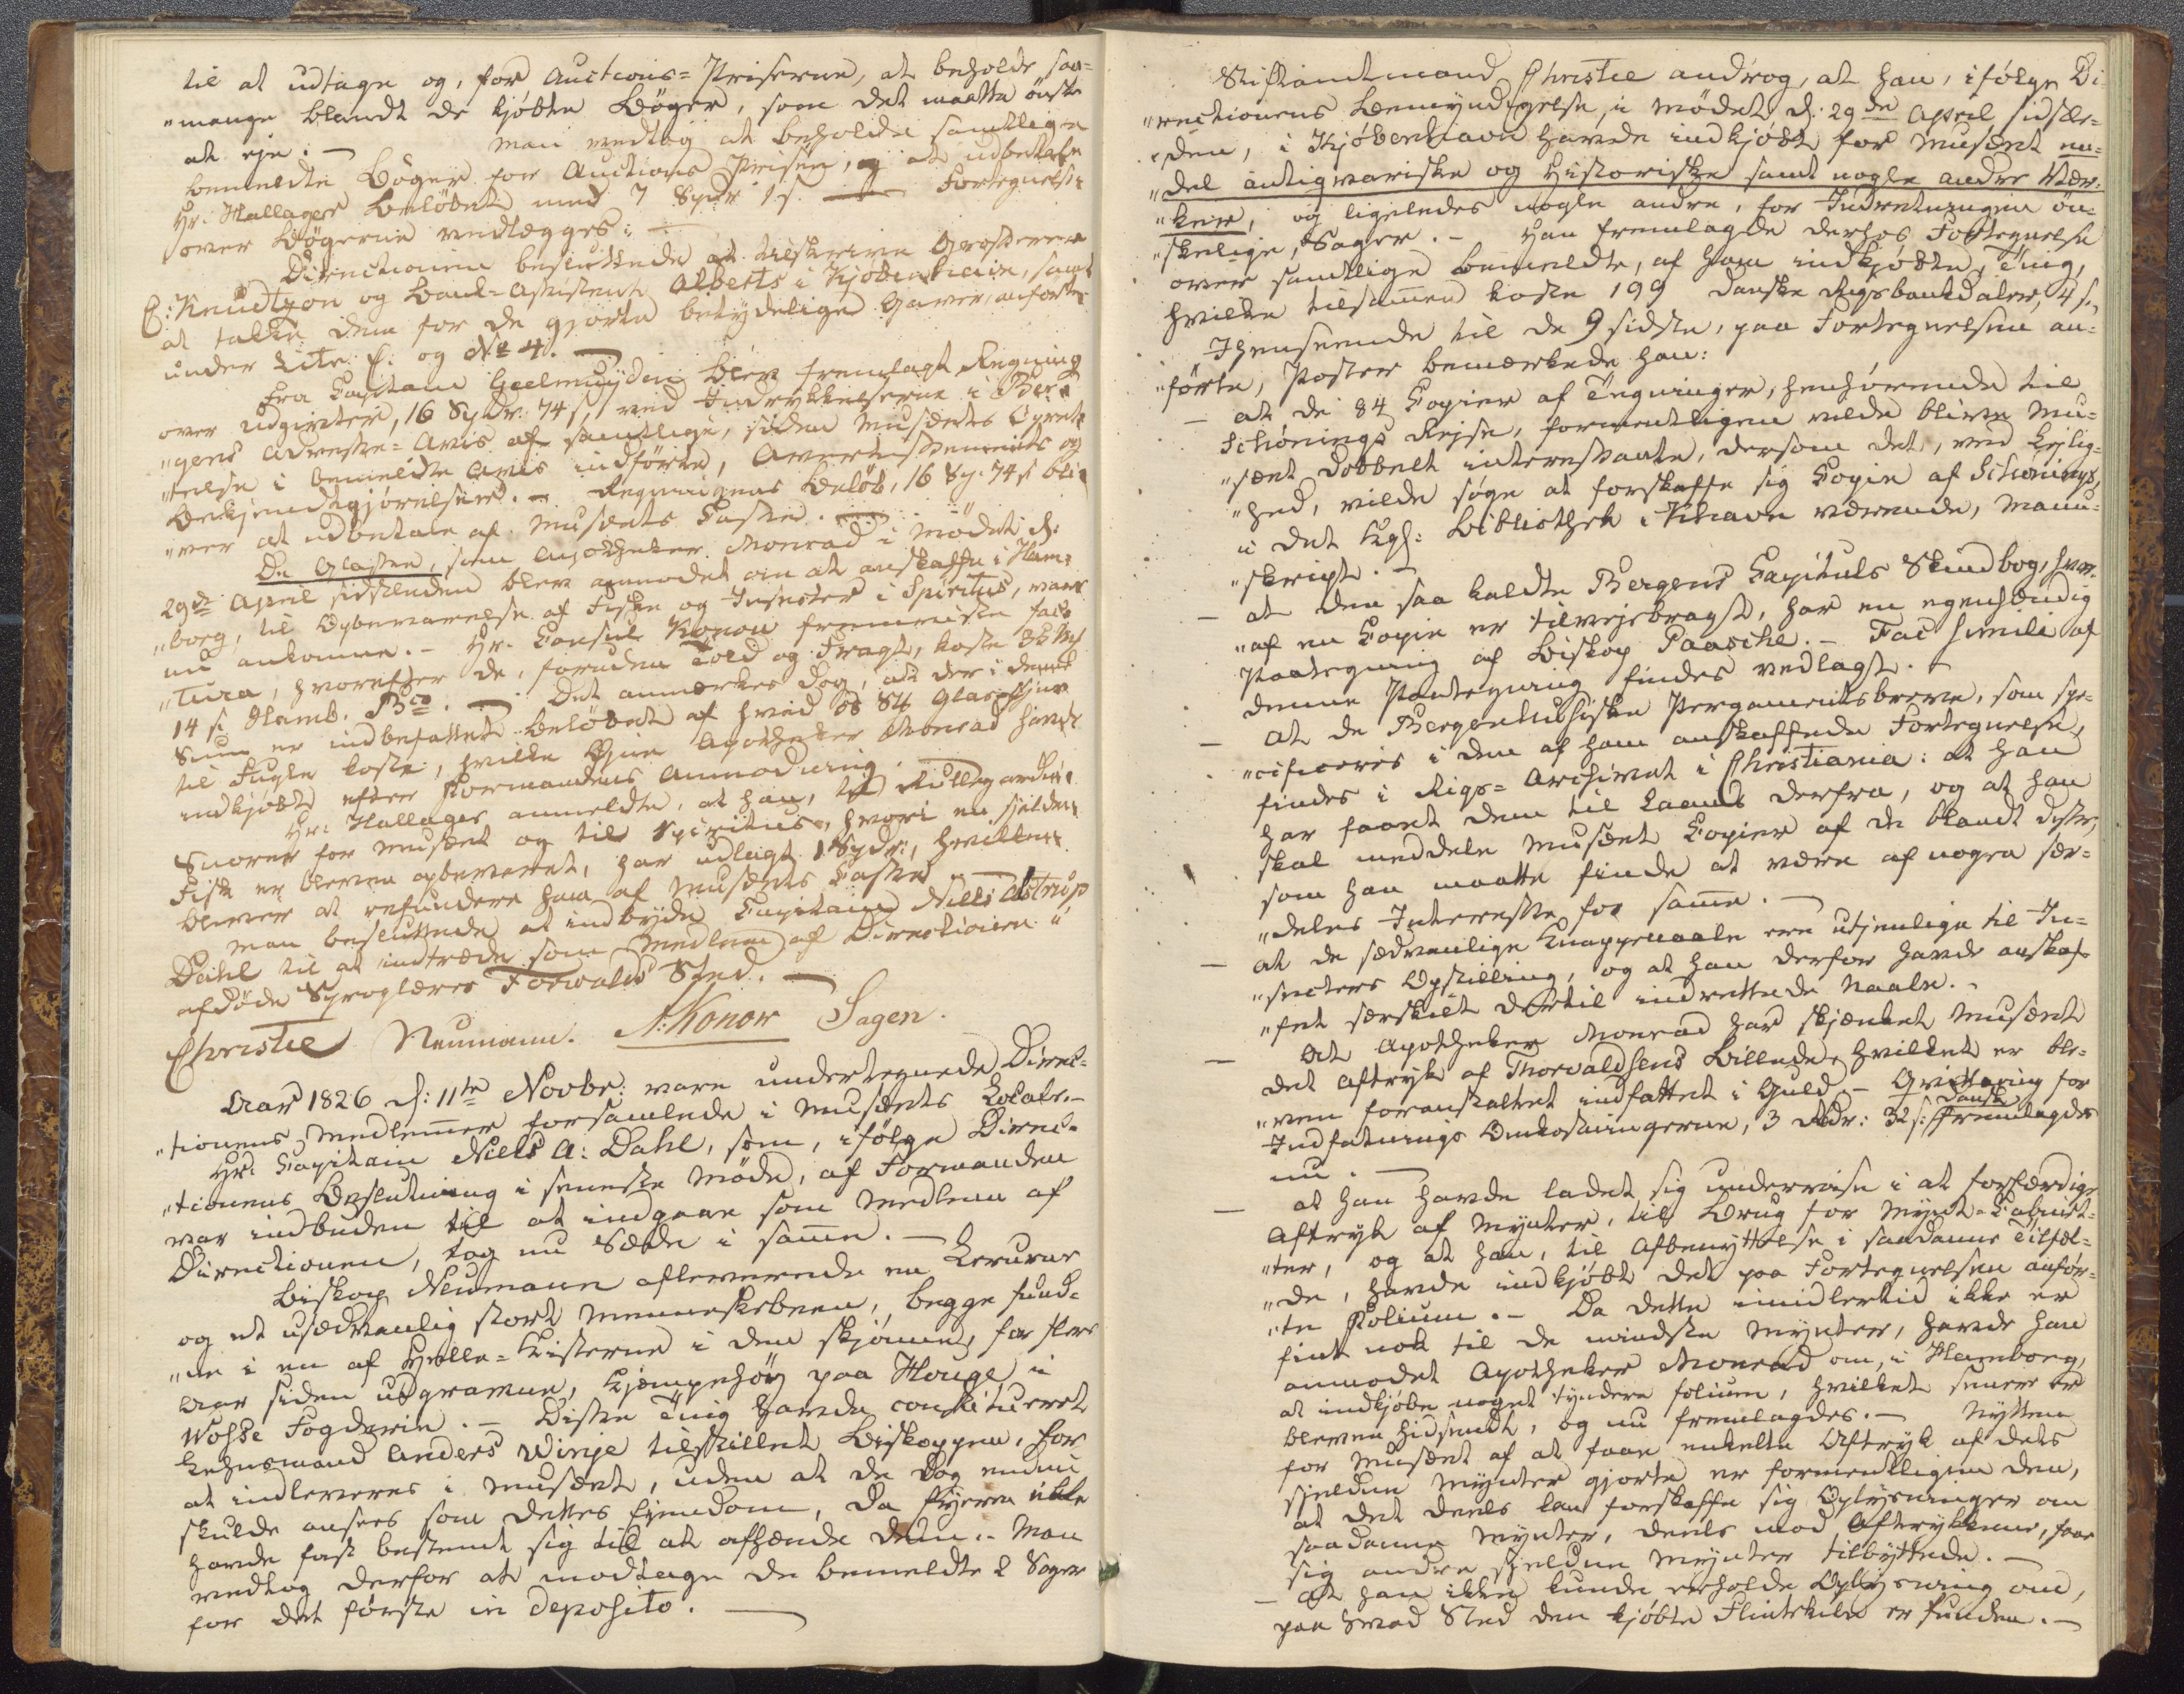 til at udtage og, for Auctions=Priserne, at beholde saa=
„mange blandt de kjöbte Böger, som det maatte önske
at eje. — Man vedtog at beholde samtlige
bemeldte Böger for Auctions Prisen, og at udbetale
Hr. Hallager Belöbet med 7 Spdr 1 s. — Fortegnelse
over Bögerne vedlægges. —
Directionen besluttede at tilskrive Grosserer
C: Knudtzon og Bank=Assistent Alberts i Kjöbenhavn, samt
at takke dem for de gjorte betydelige Gaver, anförte
under Litr. C: og No 4. —
Fra Capitain Geelmuyden blev fremlagt Regning
over Udgivter, 16 Spdr. 74 s, ved Indrykkelserne i Ber=
„gens Adresse=Avis af samtlige, siden Musæets Opret=
„telse i bemeldte Avis indförte, Avertissements og
Bekjendtgjörelser. — Regningens Belöb, 16 Sp. 74 s bli=
„ver at udbetale af Musæets Casse. —
De Glasse, som Apotheker Monrad i Mödet d:
29de April sidstleden blev anmodet om at anskaffe i Ham=
„borg, til Opbevarelse af Fiske og Insecter i Spiritus, vare
nu ankomne. — Hr. Consul Konow fremviiste Fac=
„tura, hvorefter de, foruden Told og Fragt, koste 86 Mk
14 s. Hamb. Bco. — Det anmærkes dog, at der i denne
Sum er indbefattet Belöbet af hvad 84 Glas Öjne
til Fugle koste, hvilke Öjne Apotheker Monrad havde
indkjöbt efter Formandens Anmodning. —
Hr: Hallager anmeldte, at han, til Rullegardin=
Snorer for Musæet og til Spiritus, hvori en sjelden
Fisk er bleven opbevaret, har udlagt 1 Spdr:, hvilken
bliver at refundere ham af Musæets Casse. —
Man besluttede at indbyde Capitain Niels Astrup
Dahl til at indtræde som Medlem af Directionen i
afdöde Sproglærer Forwalds Sted. —
Christie Neumann. A: Konow Sagen.
Aar 1826 d: 11te Novbr: vare undertegnede Direc=
„tionens Medlemmer forsamlede i Musæets Locale. —
Hr. Capitain Niels A: Dahl, som, ifölge Direc=
„tionens Beslutning i seneste Möde, af Formanden
var indbuden til at indgaae som Medlem af
Directionen, tog nu Sæde i samme. —
Biskop Neumann afleverede en Leeruurne
og et usædvanlig stort Menneskebeen, begge fund=
„ne i en af Helle=Kisterne i den skjönne, for flere
Aar siden udgravne, Kjæmpehöj paa Houge i
Wosse Fogderie. — Disse Ting havde constitueret
Lehnsmand Anders Winje tilstillet Biskoppen, for
at indleveres i Musæet, uden at de dog endnu
skulde ansees som dettes Eiendom, da Ejeren ikke
havde fast bestemt sig til at afhænde dem. — Man
vedtog derfor at modtage de bemeldte 2 Sager
for det förste in deposito. —
Stiftamtmand Christie androg, at han, ifölge Di=
„rectionens Bemyndigelse, i Mödet d: 29de April sidstle=
„den, i Kjöbenhavn havde indkjöbt for Musæet en
„del antiqvariske og Historiske samt nogle andre Vær=
„ker, og ligeledes nogle andre, for Indretningen ön=
„skelige, Sager. — Han fremlagde derhos Fortegnelse
over samtlige bemeldte, af ham indkjöbte, Ting,
hvilke tilsammen koste 199 danske Rigsbankdaler, 4 s.,
Ihenseende til de 9 sidste, paa Fortegnelsen an=
„förte, Poster bemærkede han:
— at de 84 Copier af Tegninger, henhörende til
Schönings Rejse, formentligen vilde blive Mu=
„sæet dobbelt interessante, dersom det, ved Lejlig=
„hed, vilde söge at forskaffe sig Copie af Schönings,
i det Kgl: Bibliothek i Khavn værende, Manu=
„skript. —
— at den saa kaldte Bergens Capituls Skindbog, hvor=
„af en Copie er tilvejebragt, har en egenhændig
Paategning af Biskop Paasche. — Fac simile af
denne Paategning findes vedlagt. —
— at de Bergenhusiske Pergamentsbreve, som spe=
„cificeres i den af ham anskaffede Fortegnelse,
findes i Rigs=Archivet i Christiania: at han
har faaet dem til Laans derfra, og at han
skal meddele Musæet Copier af de blandt disse,
som han maatte finde at være af nogen sær=
„deles Interesse for samme. —
— at de sædvanlige Knappenaale ere utjenlige til In=
„secters Opstilling, og at han derfor havde anskaf=
„fet særskilt dertil indrettede Naale. —
— At Apotheker Monrad har skjænket Musæet
det Aftryk af Thorvaldsens Billede, hvilket er ble=
„ven foranstaltet indfattet i Guld. — Qvittering for
Indfatnings Omkostningerne, 3 Rdr: 32 s: dansk fremlagdes
nu. —
— at han havde ladet sig underviise i at forfærdige
Aftryk af Mynter, til Brug for Mynt=Cabinet=
„ter, og at han, til Afbenyttelse i saadanne Tilfæl=
„de, havde indkjöbt det paa Fortegnelsen anför=
„te Folium. — Da dette imidlertid ikke er
fint nok til de mindste Mynter, havde han
anmodet Apotheker Monrad om, i Hamborg,
at indkjöbe noget tyndere folium, hvilket senere er
bleven hidsendt, og nu fremlagdes. — Nytten
for Musæet af at faae enkelte Aftryk af dets
sjeldne Mynter gjorte er formentligen den,
at det deels kan forskaffe sig Oplysninger om
saadanne Mynter, deels mod Aftrykkene, faae
sig andre sjeldne Mynter tilbyttede. —
— At han ikke kunde erholde Oplysning om,
paa hvad Sted den kjöbte Flintekile er funden. —